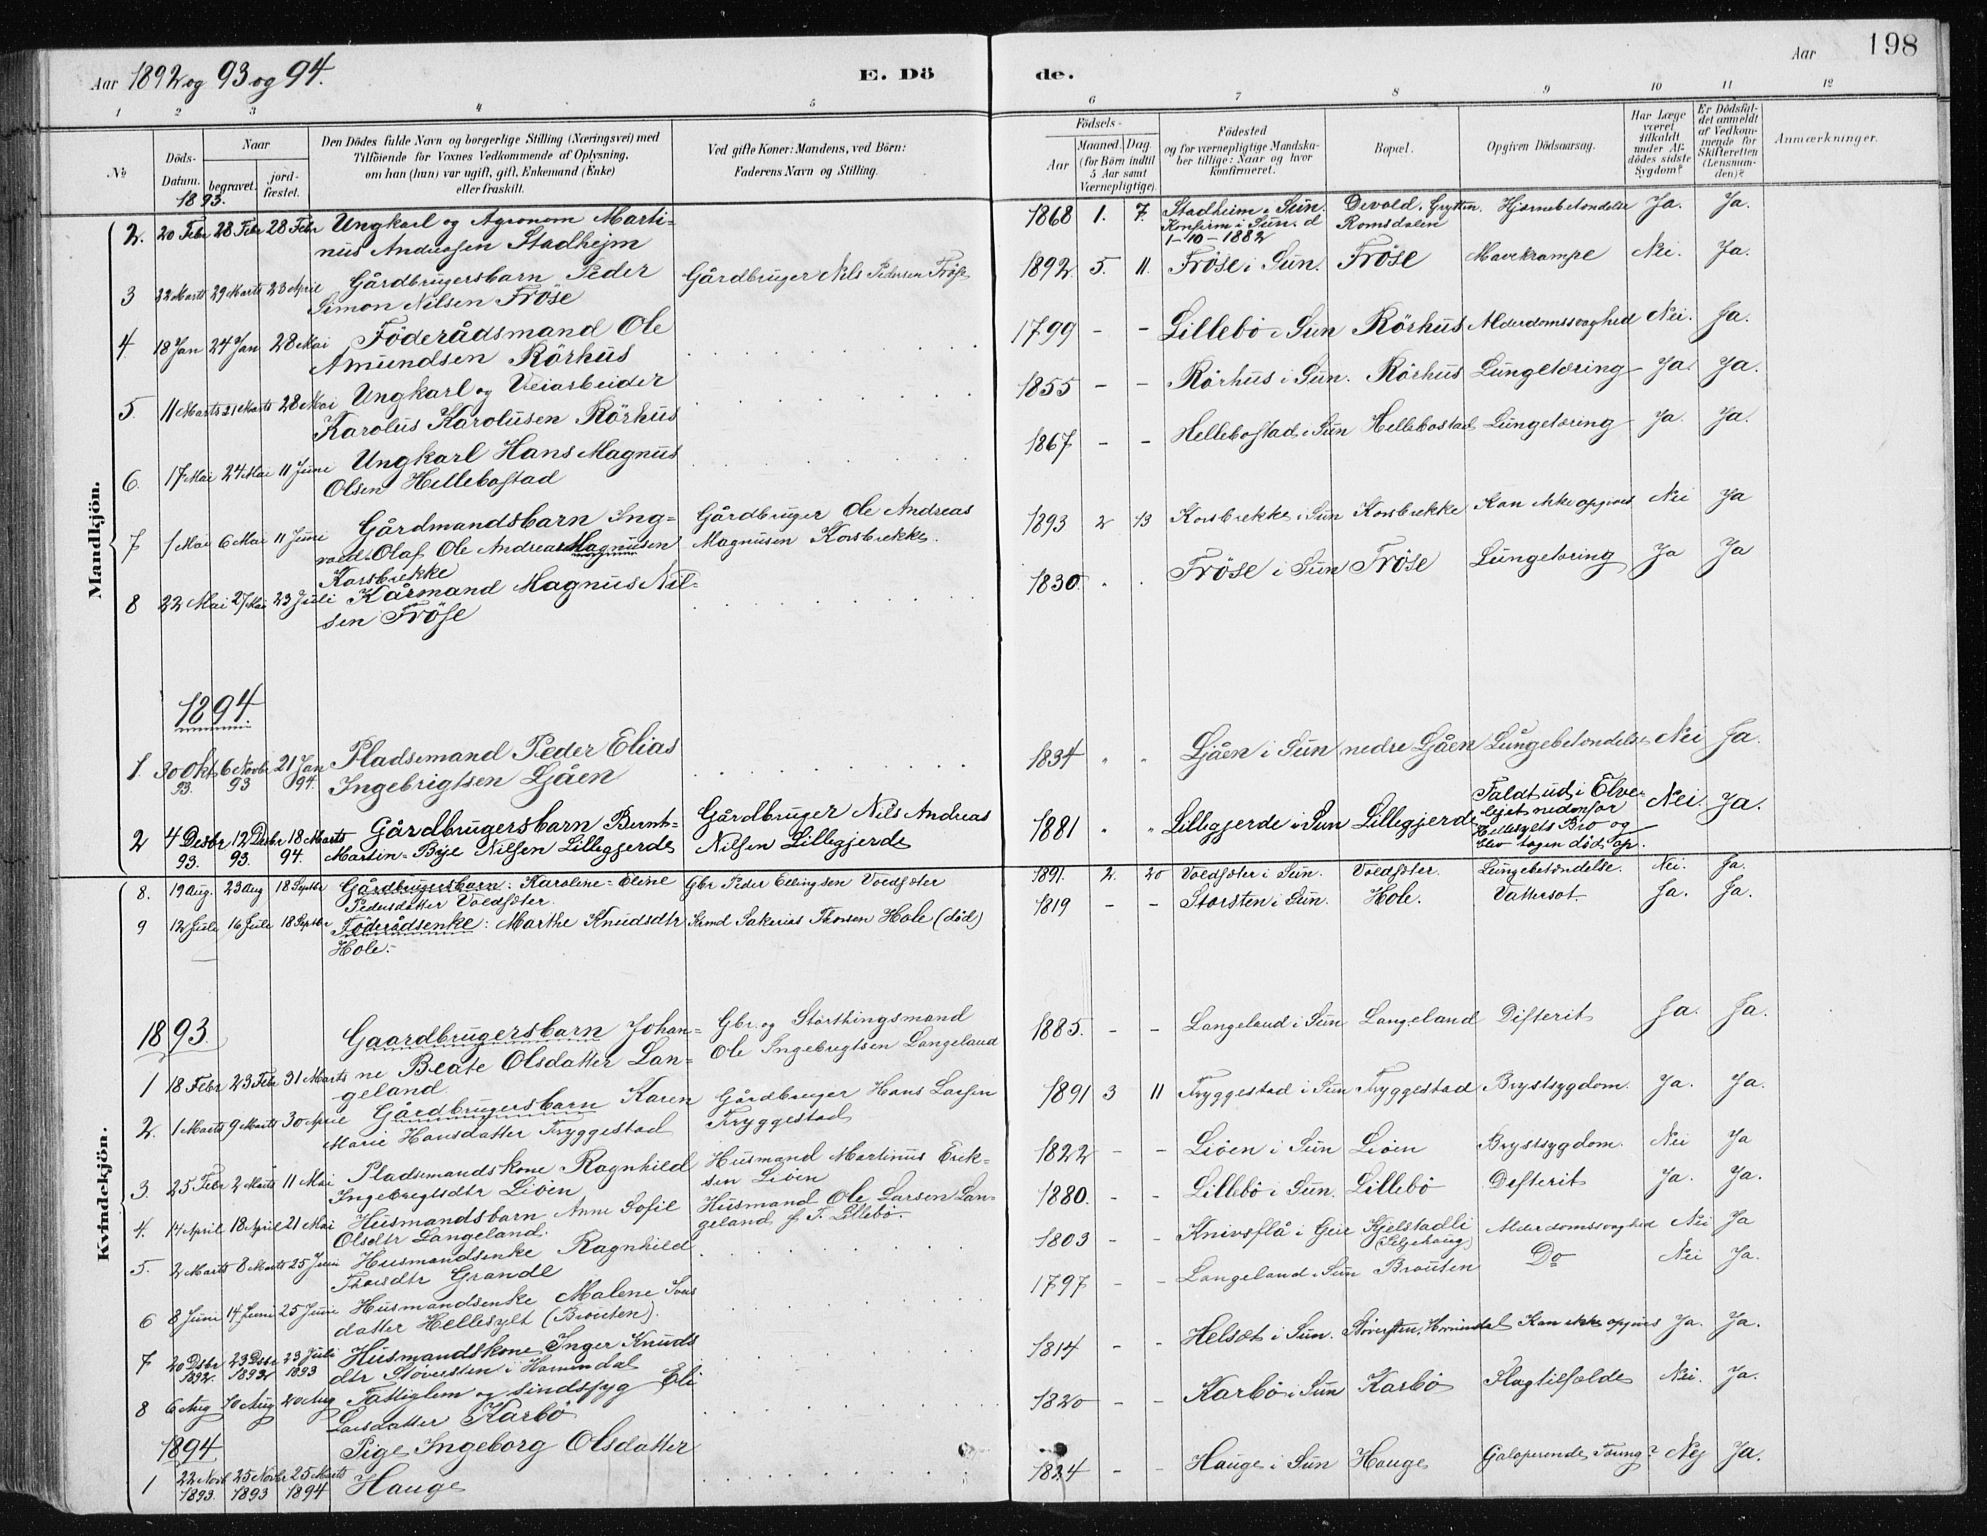 Aar 1892 og 93 og 94.
E. Dö
de.
Aar
198
1 2 3 4 5 6 7 8 9 10 11 12
No
Döds-Datum.
1893.
Naar
begravet.
jord-fæstet.
Den Dödes fulde Navn og borgerlige Stilling (Næringsvei) med
Tilföiende for Voxnes Vedkommende af Oplysning,
om han (hun) var ugift, gift, Enkemand (Enke)
eller fraskilt.
Ved gifte Koner: Mandens, ved Börn:
Faderens Navn og Stilling.
Födsels-
Aar
Maaned. Dag
(for Börn indtil
5 Aar samt
Værnepligtige).
Födested
og for værnepligtige Mandska-
ber tillige: Naar og hvor
konfirmeret.
Bopæl.
Opgiven Dödsaarsag.
Har Læge
været
tilkaldt
under Af-
dödes sidste
Sygdom?
Er Dödsfal-
det anmeldt
af Vedkom-
mende for
Skifteretten
(Lensman-
den)?
Anmærkninger.
Mandkjön.
2. 20 Febr 28 Febr 28 Febr Ungkarl og Agronom Marti- 1868 1. 7. Stadheim i Sun. Devold, Grytten Hjernebetendelse Ja. Ja.
nus Andreasen Stadhejm Konfirm i Sun. d Romsdalen
1-10-1882
3 22 Marts 29 Marts 23 April Gårdbrugersbarn Peder Gårdbruger Nils Pedersen Fröse 1892 5. 11. Fröse i Sun. Fröse Mavekrampe Nei. Ja.
Simon Nilsen Fröse
4. 18 Jan 24 Jan 28 Mai Föderådsmand Ole 1799 - - Lillebö i Sun Rörhus Alderdomssvaghed Nei. Ja.
Amundsen Rörhus
5. 11 Marts 21 Marts 28 Mai Ungkarl og Veiarbeider 1855 - - Rörhus i Sun. Rörhus Lungetæring Ja Ja.
Karolus Karolusen Rörhus
6. 17 Mai 24 Mai 11 Juni Ungkarl Hans Magnus 1867 - - Hellebostad i Sun Hellebostad Lungetæring Ja. Ja.
Olsen Hellebostad
7 1 Mai 6 Mai 11 Juni Gårdmandsbarn Ing- Gårdbruger Ole Andreas 1893 2 13 Korsbrekke i Sun Korsbrekke Kan ikke opgives Nei Ja
vald Olaf Ole Andreas Magnusen Magnusen Korsbrekke.
Korsbrekke
8 22 Mai 27 Mai 23 Juli Kårmand Magnus Nil- 1830. Fröse i Sun Fröse Lungetæring Ja Ja
sen Fröse
1894.
1. 30 Okt 6 Novbr 21 Jan Pladsemand Peder Elias 1834 " " Ljåen i Sun nedre Ljåen Lungebetendelse Nei Ja.
93. 93 94. Ingebrigtsen Ljåen
2 4 Desbr 12 Desbr 18 Marts Gårdbrugersbarn Bernt- Gårdbruger Nils Andreas 1881 " " Lillegjerde i Sun Lillegjerde Faldt ud i Elve- Nei. Ja.
93. 93. 94. Martin- Bye Nilsen Lillegjerde Nilsen Lillegjerde lejet nedenfor
Hellesylts Bro og
blev tagen död op.
Kvindekjön.
8. 19 Aug. 23 Aug 18 Septbr Gårdbrugersbarn: Karoline-Eline Gbr Peder Ellingsen Voldsæter 1891. 2. 20 Voldsæter i Sun. Voldsæter. Lungebetendelse. Nei. Ja.
Pedersdatter Voldsæter.
9 12 Jule 16 Jule 18 Septbr Föderådsenke: Marthe Knudsdtr Krmd Sakerias Thorsen Hole (död) 1819 - - Storsten i Sun. Hole. Vattersot. Ja. Ja.
Hole.-
1893.
1 18 Febr 23 Febr 31 Marts Gaardbrugersbarn Johan- Gbr. og Störthingsmand 1885. - - Langeland i Sun Langeland Difterit Ja. Ja.
ne Beate Olsdatter Lan- Ole Ingebrigtsen Langeland
geland.
2. 1 Marts 9 Marts 30 April Gårdbrugersbarn Karen Gårdbruger Hans Larsen 1891 3 11 Tryggestad i Sun Tryggestad Brystsygdom. Ja. Ja.
Marie Hansdatter Tryggestad Tryggestad
3. 25 Febr 2 Marts 11 Mai Pladsemandskone Ragnhild Husmand Martinus Erik- 1822 - - Liöen i Sun Liöen Brystsygdom. Nei Ja
Ingebrigtsdtr Liöen sen Liöen
4. 14 April 18 April 21 Mai Husmandsbarn Anne Sofie Husmand Ole Larsen Lan- 1880. - - Lillebö i Sun. Lillebö Difterit Ja. Ja.
Olsdtr Langeland. geland, f. T. Lillebö.
5. 2 Marts 8 Marts 25 Juni Husmandsenke Ragnhild 1803 - - Knivsflå i Geir Kjelstadli Alderdomssvaghed Nei Ja
Thoisdtr Grande (Seljehaug)
6 8 Juni 14 Juni 25 Juni Husmandsenke Malene Sivus 1797 - - Langeland i Sun Brouten Do Nei Ja.
datter Hellesylt (Brouten).
7 20 Dsbr 23 Dsbr 23 Juli Husmandskone Inger Knuds 1814 - - Helsæt i Sun. Störesten, Hornindal Kan ikke opgives Ja. Ja.
1892. 1892 1893 dtr Störesten i Hornindal
8 6 Aug 10 Aug 20 Aug Fattiglem og sindssyg Eli 1820 - - Karbö i Sun Karbö Slagtilfælde Nei. Ja.
Larsdatter Karbö
1894
1 22 Novb 25 Novbr 25 Marts Pige Ingeborg Olsdatter 1824 - - Hauge i Sun Hauge Galoperende Tæring? Nej Ja.
1893. 1893 1894 Hauge